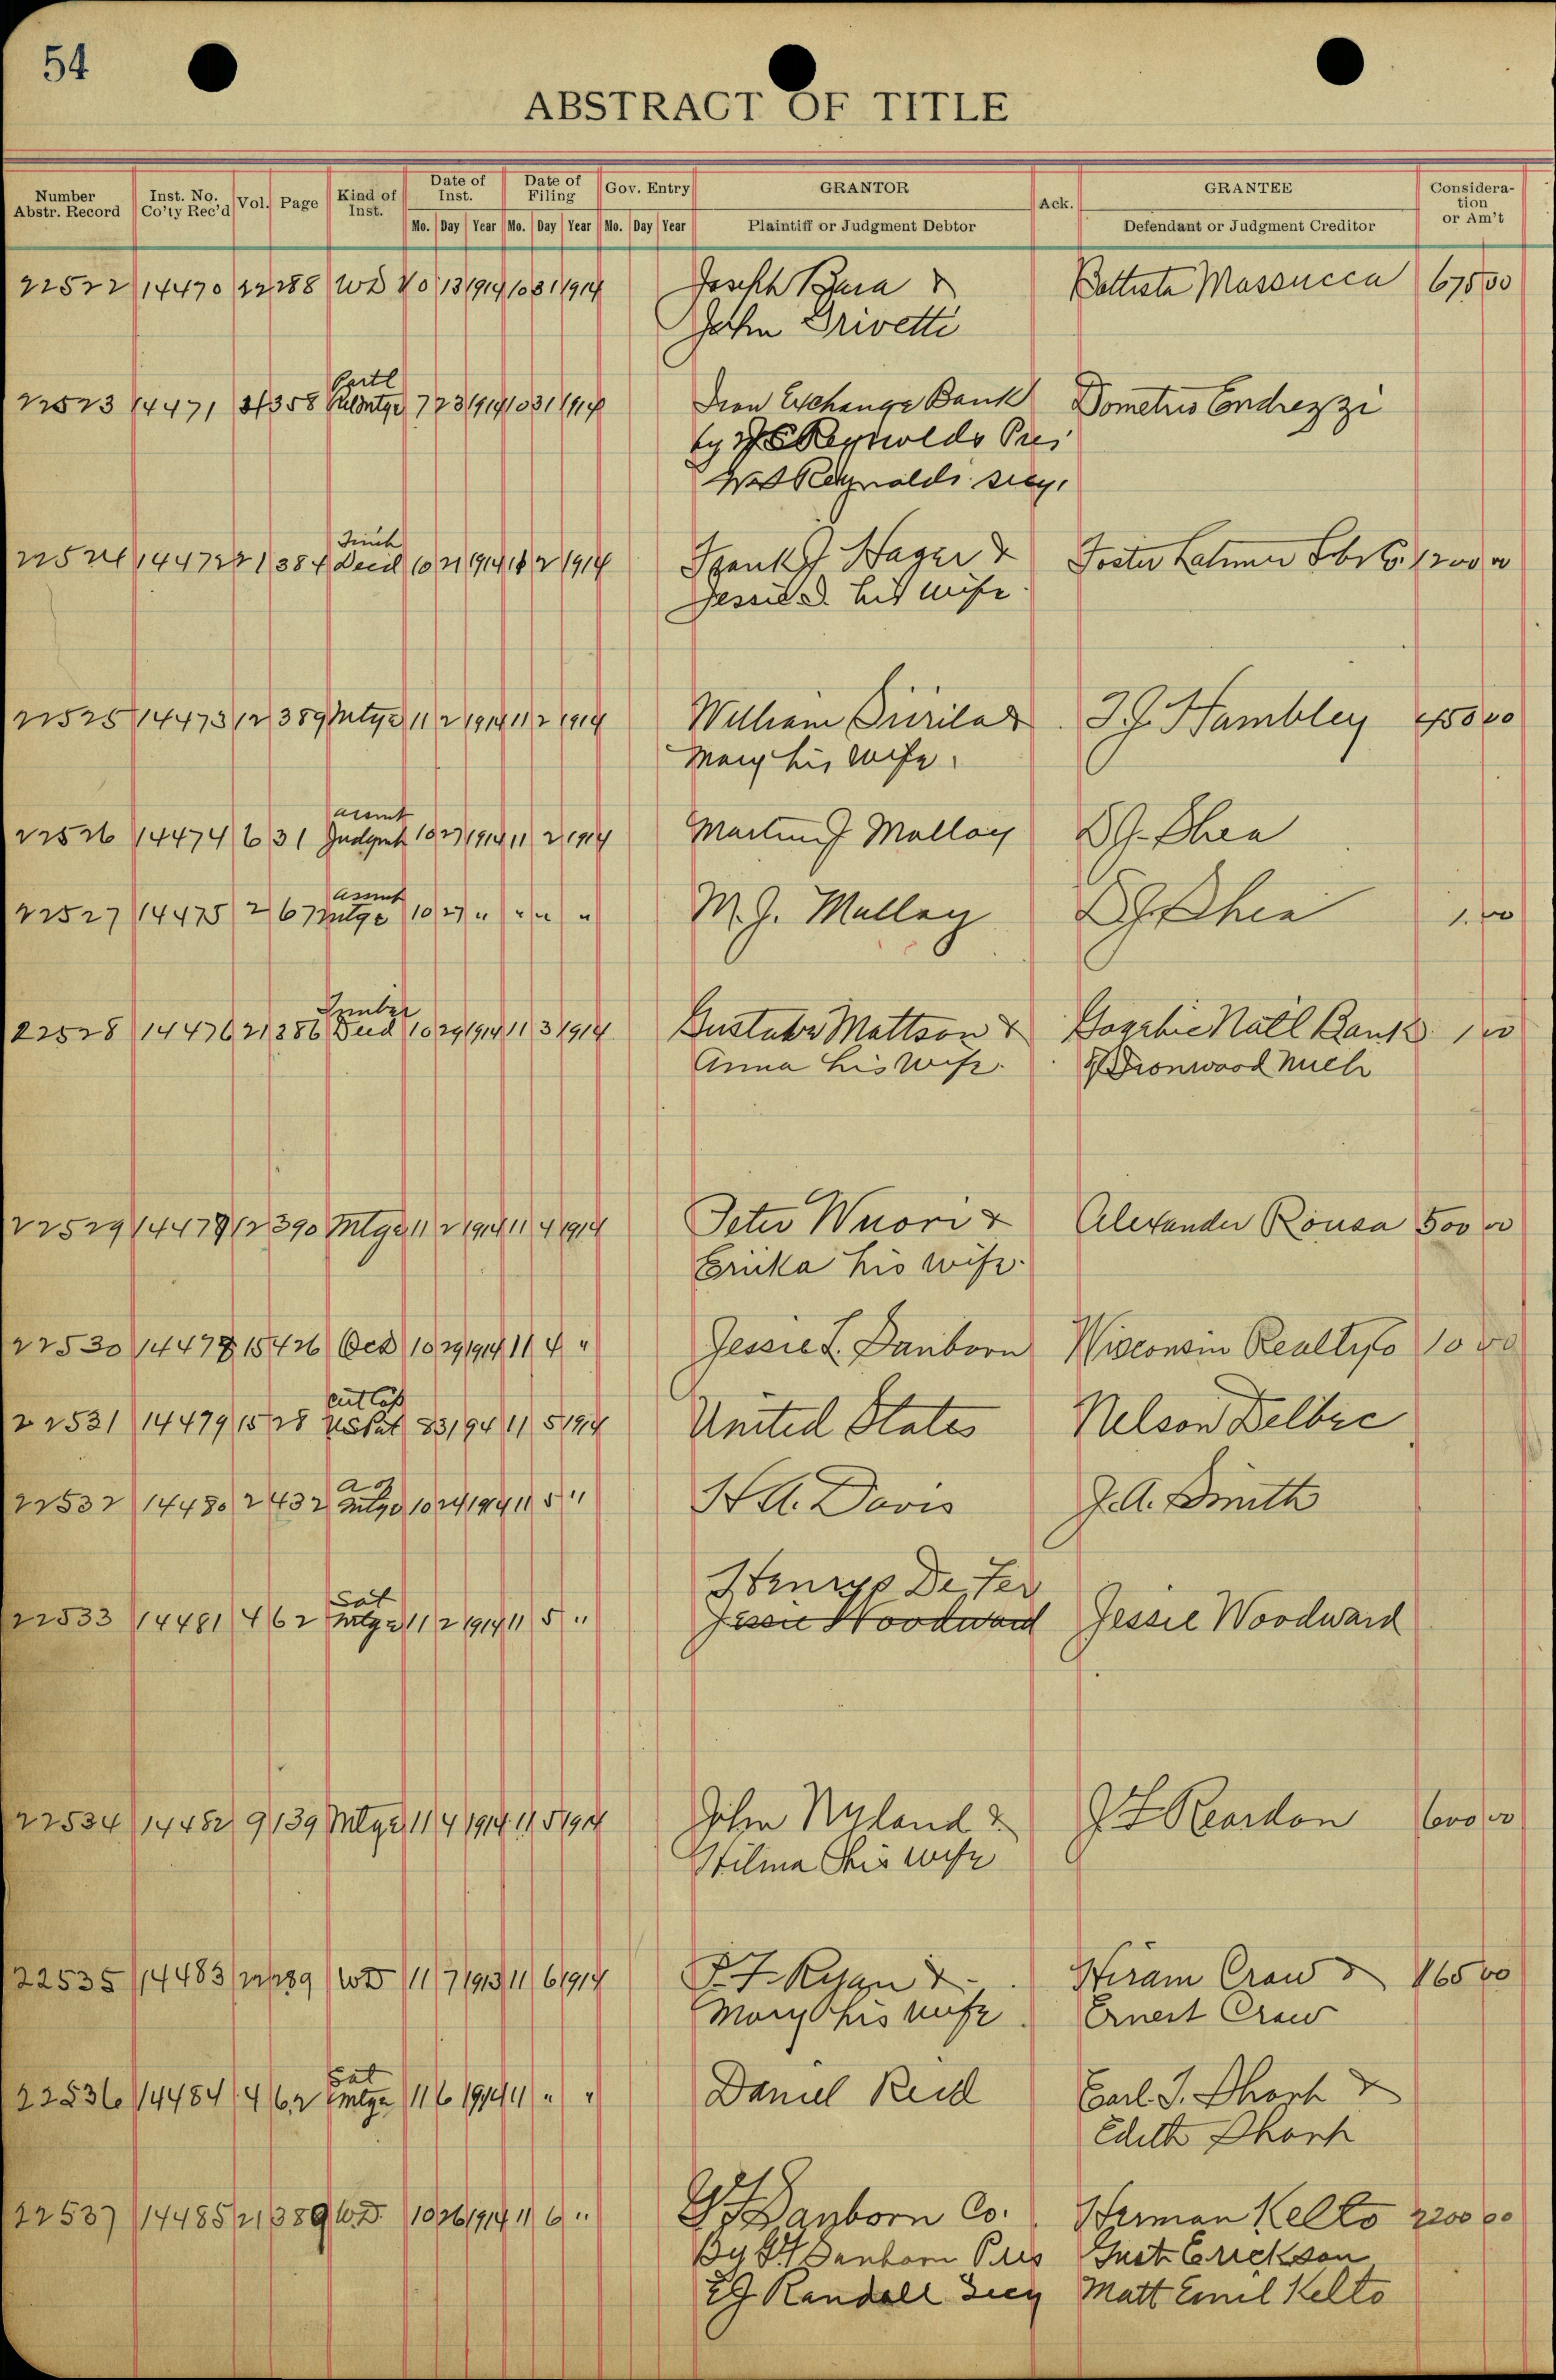 54
ABSTRACT OF TITLE
Number Abstr. Record | Inst. No. Co'ty Rec'd | Vol. | Page | Kind of Inst. | Date of Inst. | Date of Filing | Gov. Entry | GRANTOR | Ack. | GRANTEE | Consideration or Am't
Mo. Day Year Mo. Day Year Mo. Day Year Plaintiff or Judgment Debtor Defendant or Judgment Creditor
22522 14470 22 288 WD 10 13 1914 10 31 1914 Joseph Bura & Battista Massucca 675 00
John Trivetti
Partl
22523 14471 358 7 23 1914 10 31 1914 Iron Exchange Bank Dometrio Endrezzi
by Reynolds Pres
Reynolds Secy.
Timb
22524 14472 21 384 Deed 10 21 1914 11 2 1914 Frank J Hager & Foster Latimer Lbr Co. 1200 00
Jessie D his wife
22525 14473 12 389 Mtge 11 2 1914 11 2 1914 William Piirila & J.J. Hambley 450 00
Mary his wife.
assmt
22526 14474 6 31 Judgmt 10 27 1914 11 2 1914 Martin J Malloy D.J. Shea
assmt
22527 14475 2 67 Mtge 10 27 " " " " M.J. Malloy D.J. Shea 1.00
Timber
22528 14476 21 386 Deed 10 29 1914 11 3 1914 Gustave Mattson & Gogebic Natl Bank 1 00
Anna his wife. of Ironwood Mich
22529 14477 12 390 Mtge 11 2 1914 11 4 1914 Peter Wuori & Alexander Rousa 500 00
Erika his wife.
22530 14478 15 426 QCD 10 29 1914 11 4 " Jessie L. Sanborn Wisconsin Realty Co 10 00
cert Cop
22531 14479 15 28 US Pat 8 3 1 94 11 5 1914 United States Nelson Delbec
22532 14480 2 432 Mtge 10 24 1914 11 5 " H.A. Davis J.A. Smith
Henry De Fer
Sat
22533 14481 4 62 Mtge 11 2 1914 11 5 " Jessie Woodward Jessie Woodward
22534 14482 9 139 Mtge 11 4 1914 11 5 1914 John Nyland & J F Reardon 600 00
Hilma his wife
22535 14483 22 289 WD 11 7 1913 11 6 1914 P.F. Ryan & Hiram Craw & 165 00
Mary his wife. Ernest Craw
Sat
22536 14484 4 62 Mtge 11 6 1914 11 " " Daniel Reid Earl J. Sharp &
Edith Sharp
22537 14485 21 389 W.D. 10 26 1914 11 6 " Sanborn Co. Herman Kelto 2200 00
By Sanborn Pres Gust Erickson
Randall Secy Matt Emil Kelto